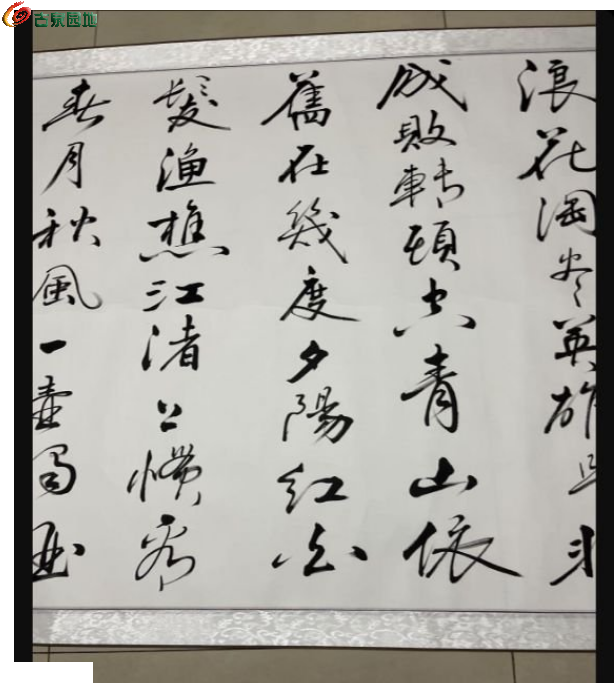 古泉园地
浪花淘尽英雄是非
成敗轉頭空青山依
舊在幾度夕陽紅白
髮渔樵江渚上慣看
春月秋風一壺濁酒